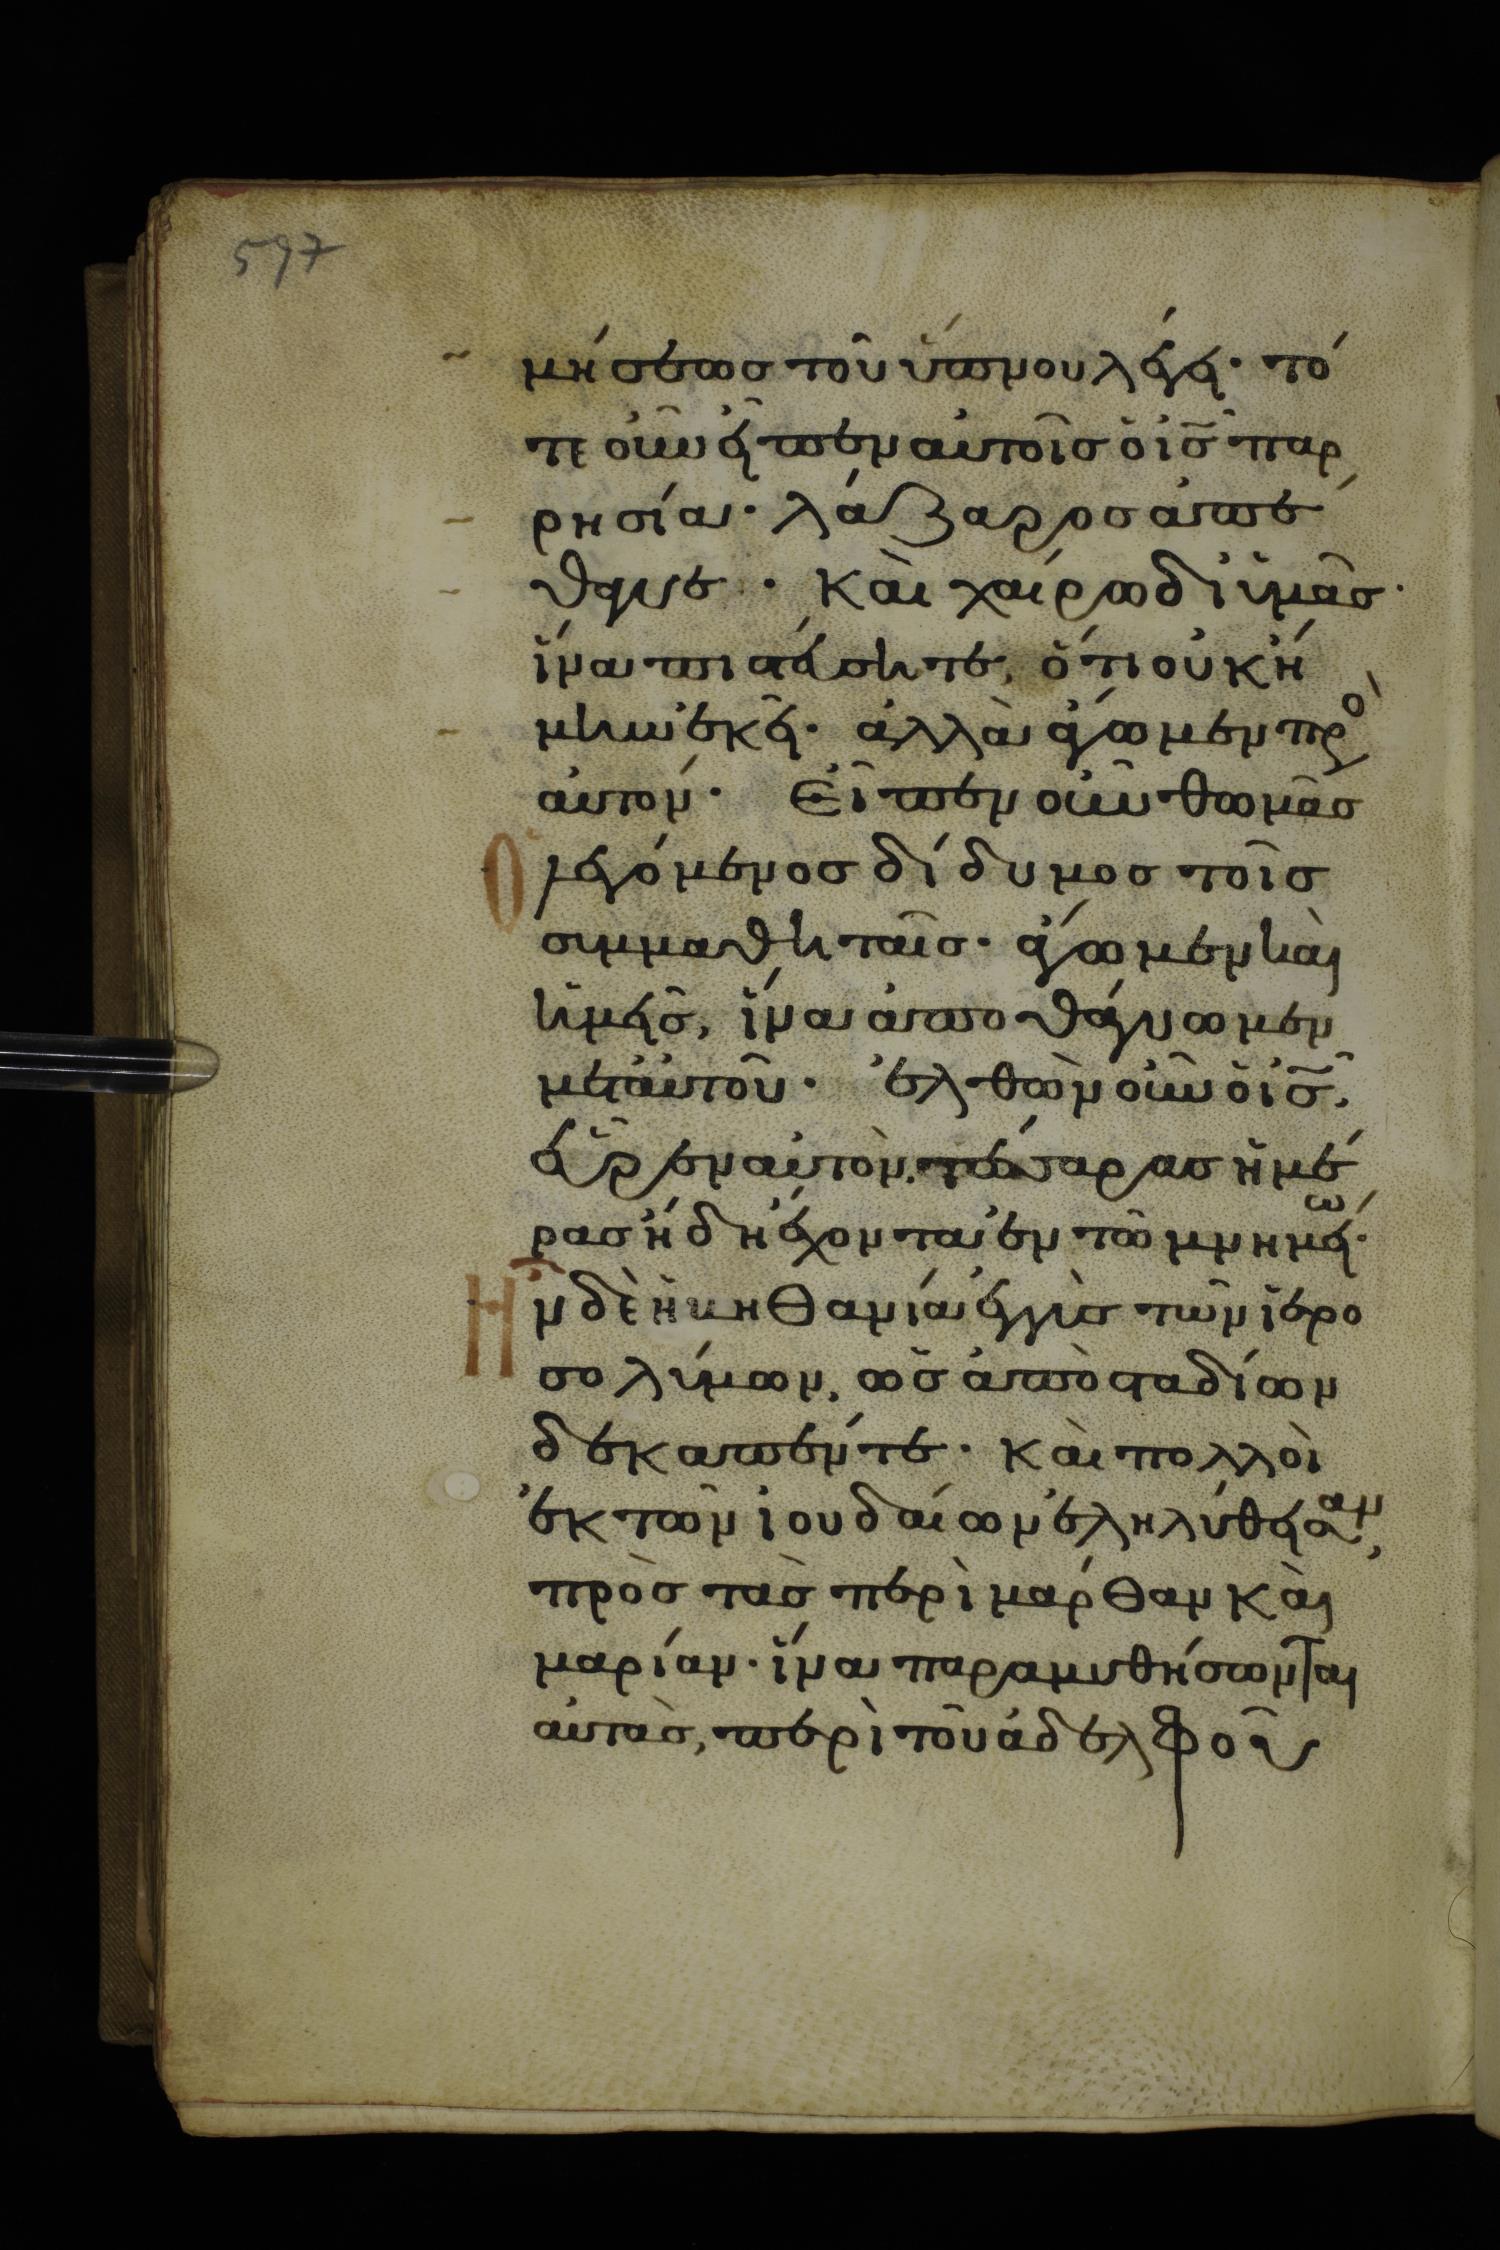 597
μήσεως τοῦ ὕπνου λέγει· τό
τε οὖν εἶπεν αὐτοῖς ὁ ις παρ
ρησία· λάζαρος ἀπέ
θανε· καὶ χαίρω δι ὑμᾶς·
ἵνα πιστεύσητε, ὅτι οὐκ ἤ
μην ἐκεῖ· ἀλλὰ ἄγωμεν πρὸ
αὐτόν· Εἶπεν οὖν θωμᾶς
Ὁ λεγόμενος δίδυμος τοῖς
συμμαθηταῖς· ἄγωμεν καὶ
ἡμεῖς, ἵνα ἀποθάνωμεν
μετ αὐτοῦ· ἐλθὼν οὖν ὁ ις,
εὗρεν αὐτὸν, τέσσαρας ἡμέ
ρας ἤδη ἔχοντα ἐν τῶ μνημείω·
Ἦν δὲ ἡ βηθανία ἐγγὺς τῶν ἱερο
σολύμων, ὡς ἀπὸ σταδίων
δεκαπέντε· καὶ πολλοὶ
ἐκ τῶν ἰουδαίων ἐληλύθεισαν,
πρὸς τὰς περὶ μάρθαν καὶ
μαρίαν· ἵνα παραμυθήσωνται
αὐτὰς, περὶ τοῦ ἀδελφοῦ